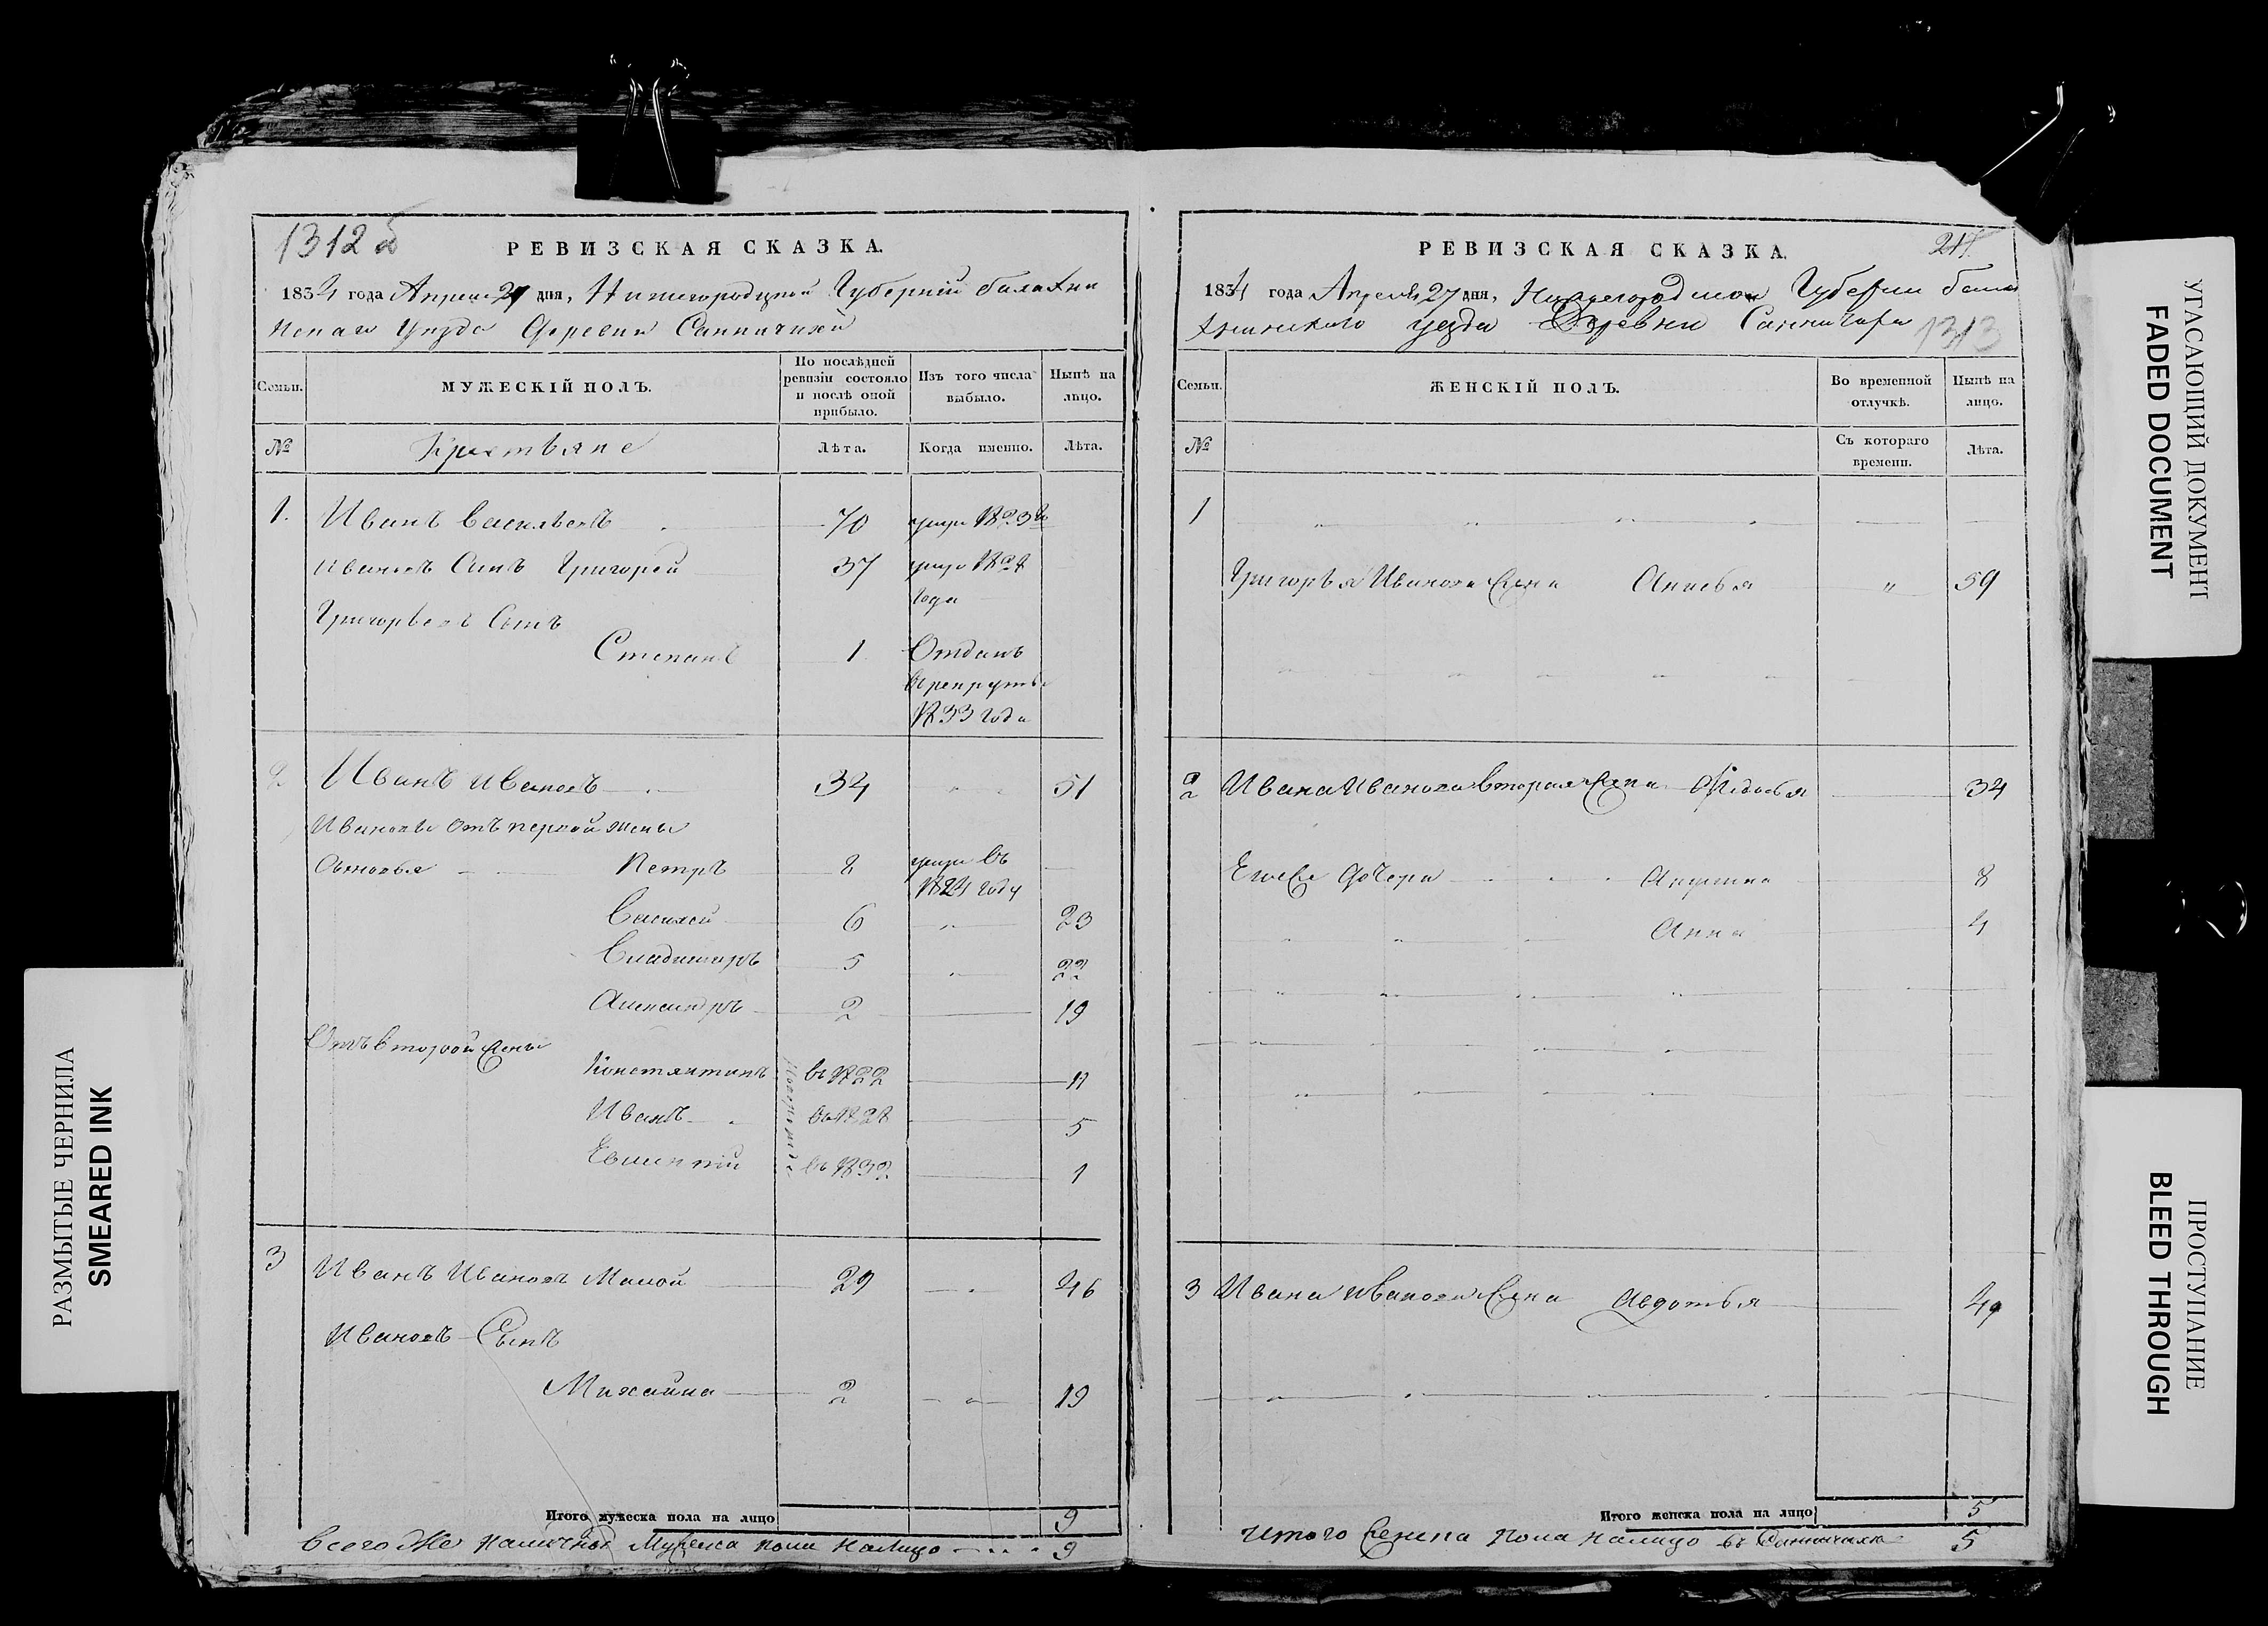 1312 об
РЕВИЗСКАЯ СКАЗКА.
1834 года Апреля 27 дня, Нижегородцкой Губерній бала хни
нскаго Уезда Деревни Санничихи
Семьи. МУЖЕСКІЙ ПОЛЪ. По послѣдней ревизіи состояло и послѣ оной прибыло. Изъ того числа выбыло. Нынѣ на лицо.
№ Крестьяне Лѣта. Когда именно. Лѣта.
1. Иванъ Васильевъ 70 умре 1823
Ивановъ Сынъ Григорей 37 умре 182
года
Григорьевъ Сынъ
Степанъ 1 Отданъ
в рекруты
1833 года
2 Иванъ Ивановъ 34 51
Ивановы отъ первой жены
Сыновья Петръ 8 умре въ
1824 году
Василей 6 " 23
Владимиръ 5 " 22
Александръ 2 19
Отъ второй жены
Константинъ въ 1822 11
Иванъ въ 1828 5
Евлампій въ 1832 1
3 Иванъ Ивановъ Малой 29 46
Ивановъ Сынъ
Михайла 2 " 19
Итого мужеска пола на лицо 9
Всего же наличныхъ Мужеска пола налицо 9
РЕВИЗСКАЯ СКАЗКА.
1834 года Апреля 27 дня, Нижегородской Губернии Бала
хнинского уезда Деревни Санничихи 1313
Семьи. ЖЕНСКІЙ ПОЛЪ. Во временной отлучкѣ. Нынѣ на лицо.
№ Съ котораго времени. Лѣта.
1
Григорья Иванова Жена " 59
2 Ивана Иванова вторая Жена 34
Ево Же дочери Акулина 8
Анна 4
3 Ивана Иванова Жена Авдотья 49
Итого женска пола на лицо 5
Итого Женска пола налицо въ Санничихе 5
РАЗМЫТЫЕ ЧЕРНИЛА
SMEARED INK
УГАСАЮЩИЙ ДОКУМЕНТ
FADED DOCUMENT
ПРОСТУПАНИЕ
BLEED THROUGH